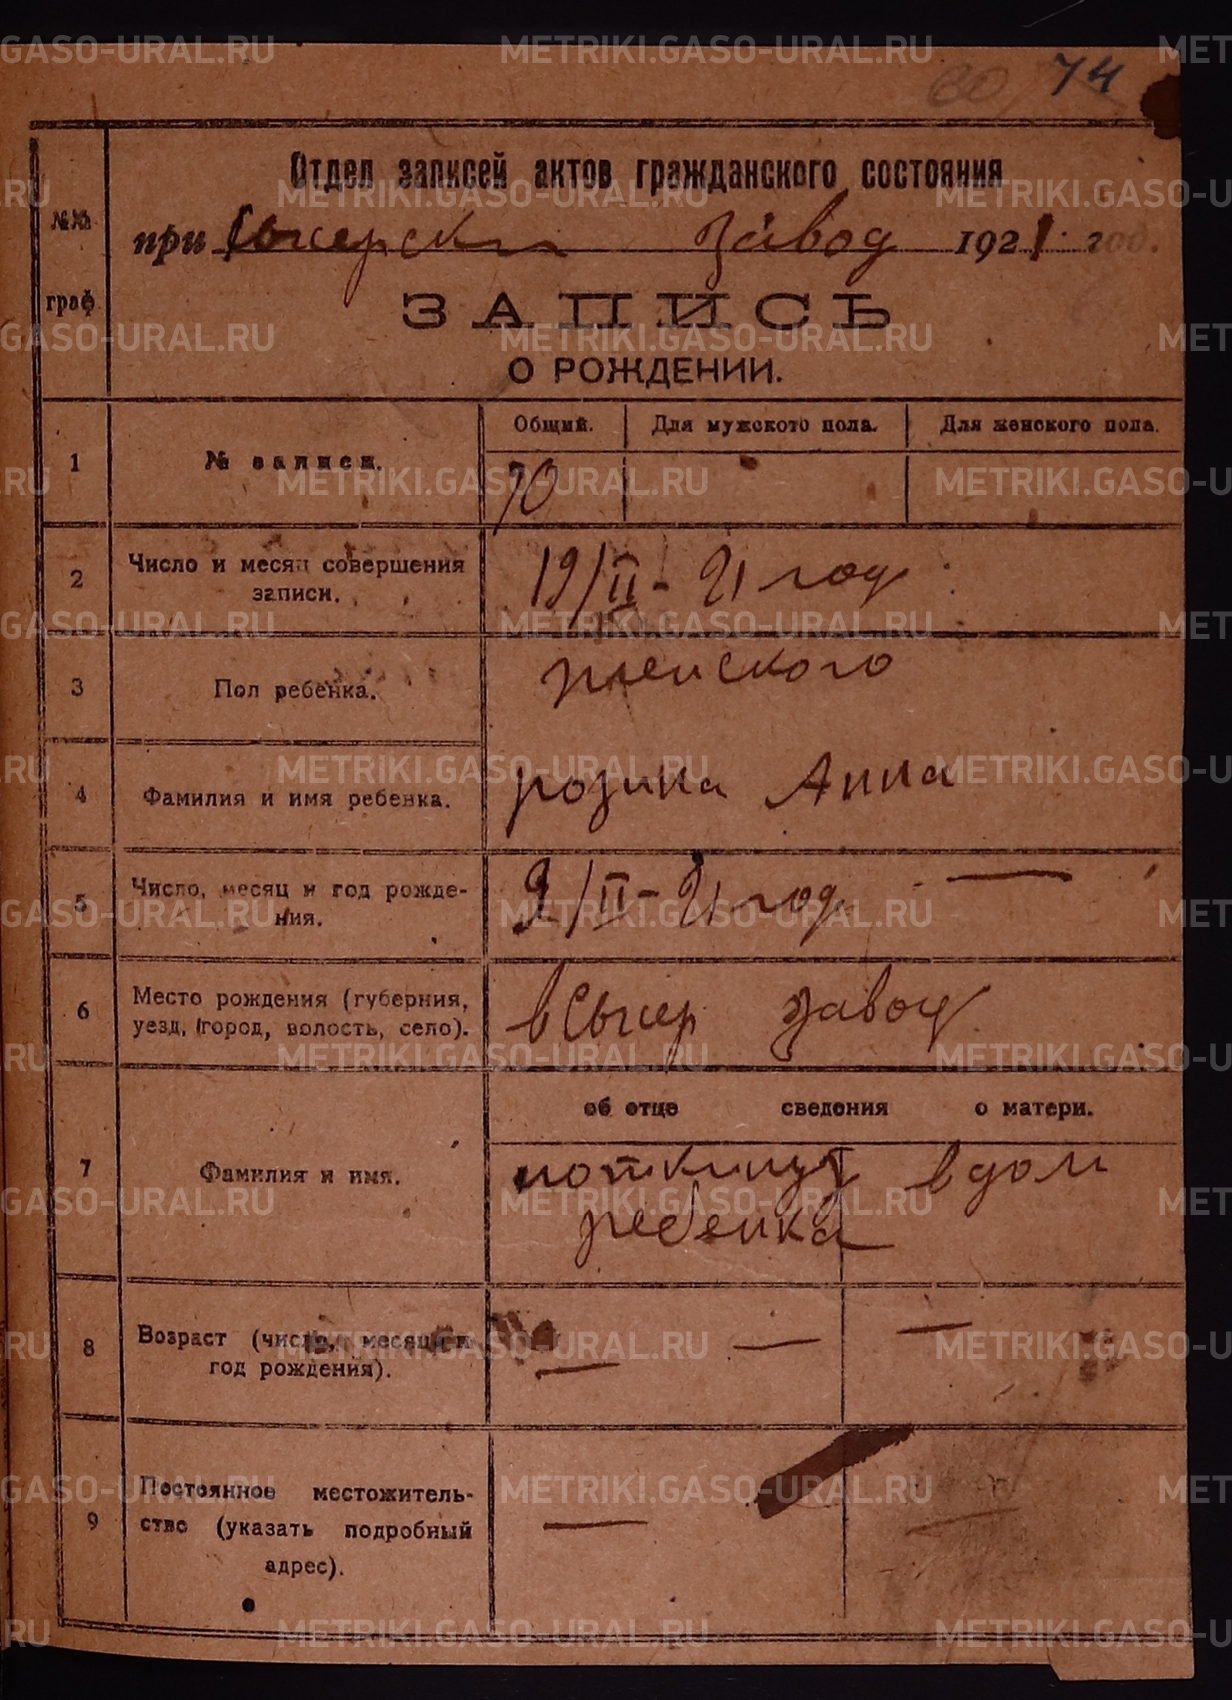 60 74
Отдел записей актов гражданского состояния
№№ при Сысерски завод 1921 год.
граф. ЗАПИСЬ
О РОЖДЕНИИ.
Общий. Для мужского пола. Для женского пола.
1 № записи. 70
2 Число и месяц совершения
записи. 19/II - 21 год
3 Пол ребенка. женского
4 Фамилия и имя ребенка. розина Анна
5 Число, месяц и год рожде-
ния. 9/II - 21 год —
6 Место рождения (губерния,
уезд, город, волость, село). в Сысер завод
об отце сведения о матери.
7 Фамилия и имя. поткинут в дом
ребенка
8 Возраст (число, месяц и
год рождения). — — —
9 Постоянное местожитель-
ство (указать подробный
адрес). — —
METRIKI.GASO-URAL.RU